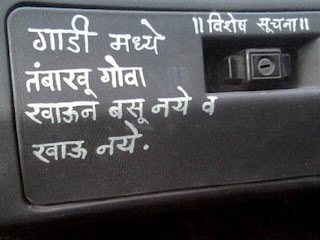 ॥विशेष सूचना॥
गाडी मध्ये
तंबाखू गोवा
खाऊन बसू नये व
खाऊ नये.